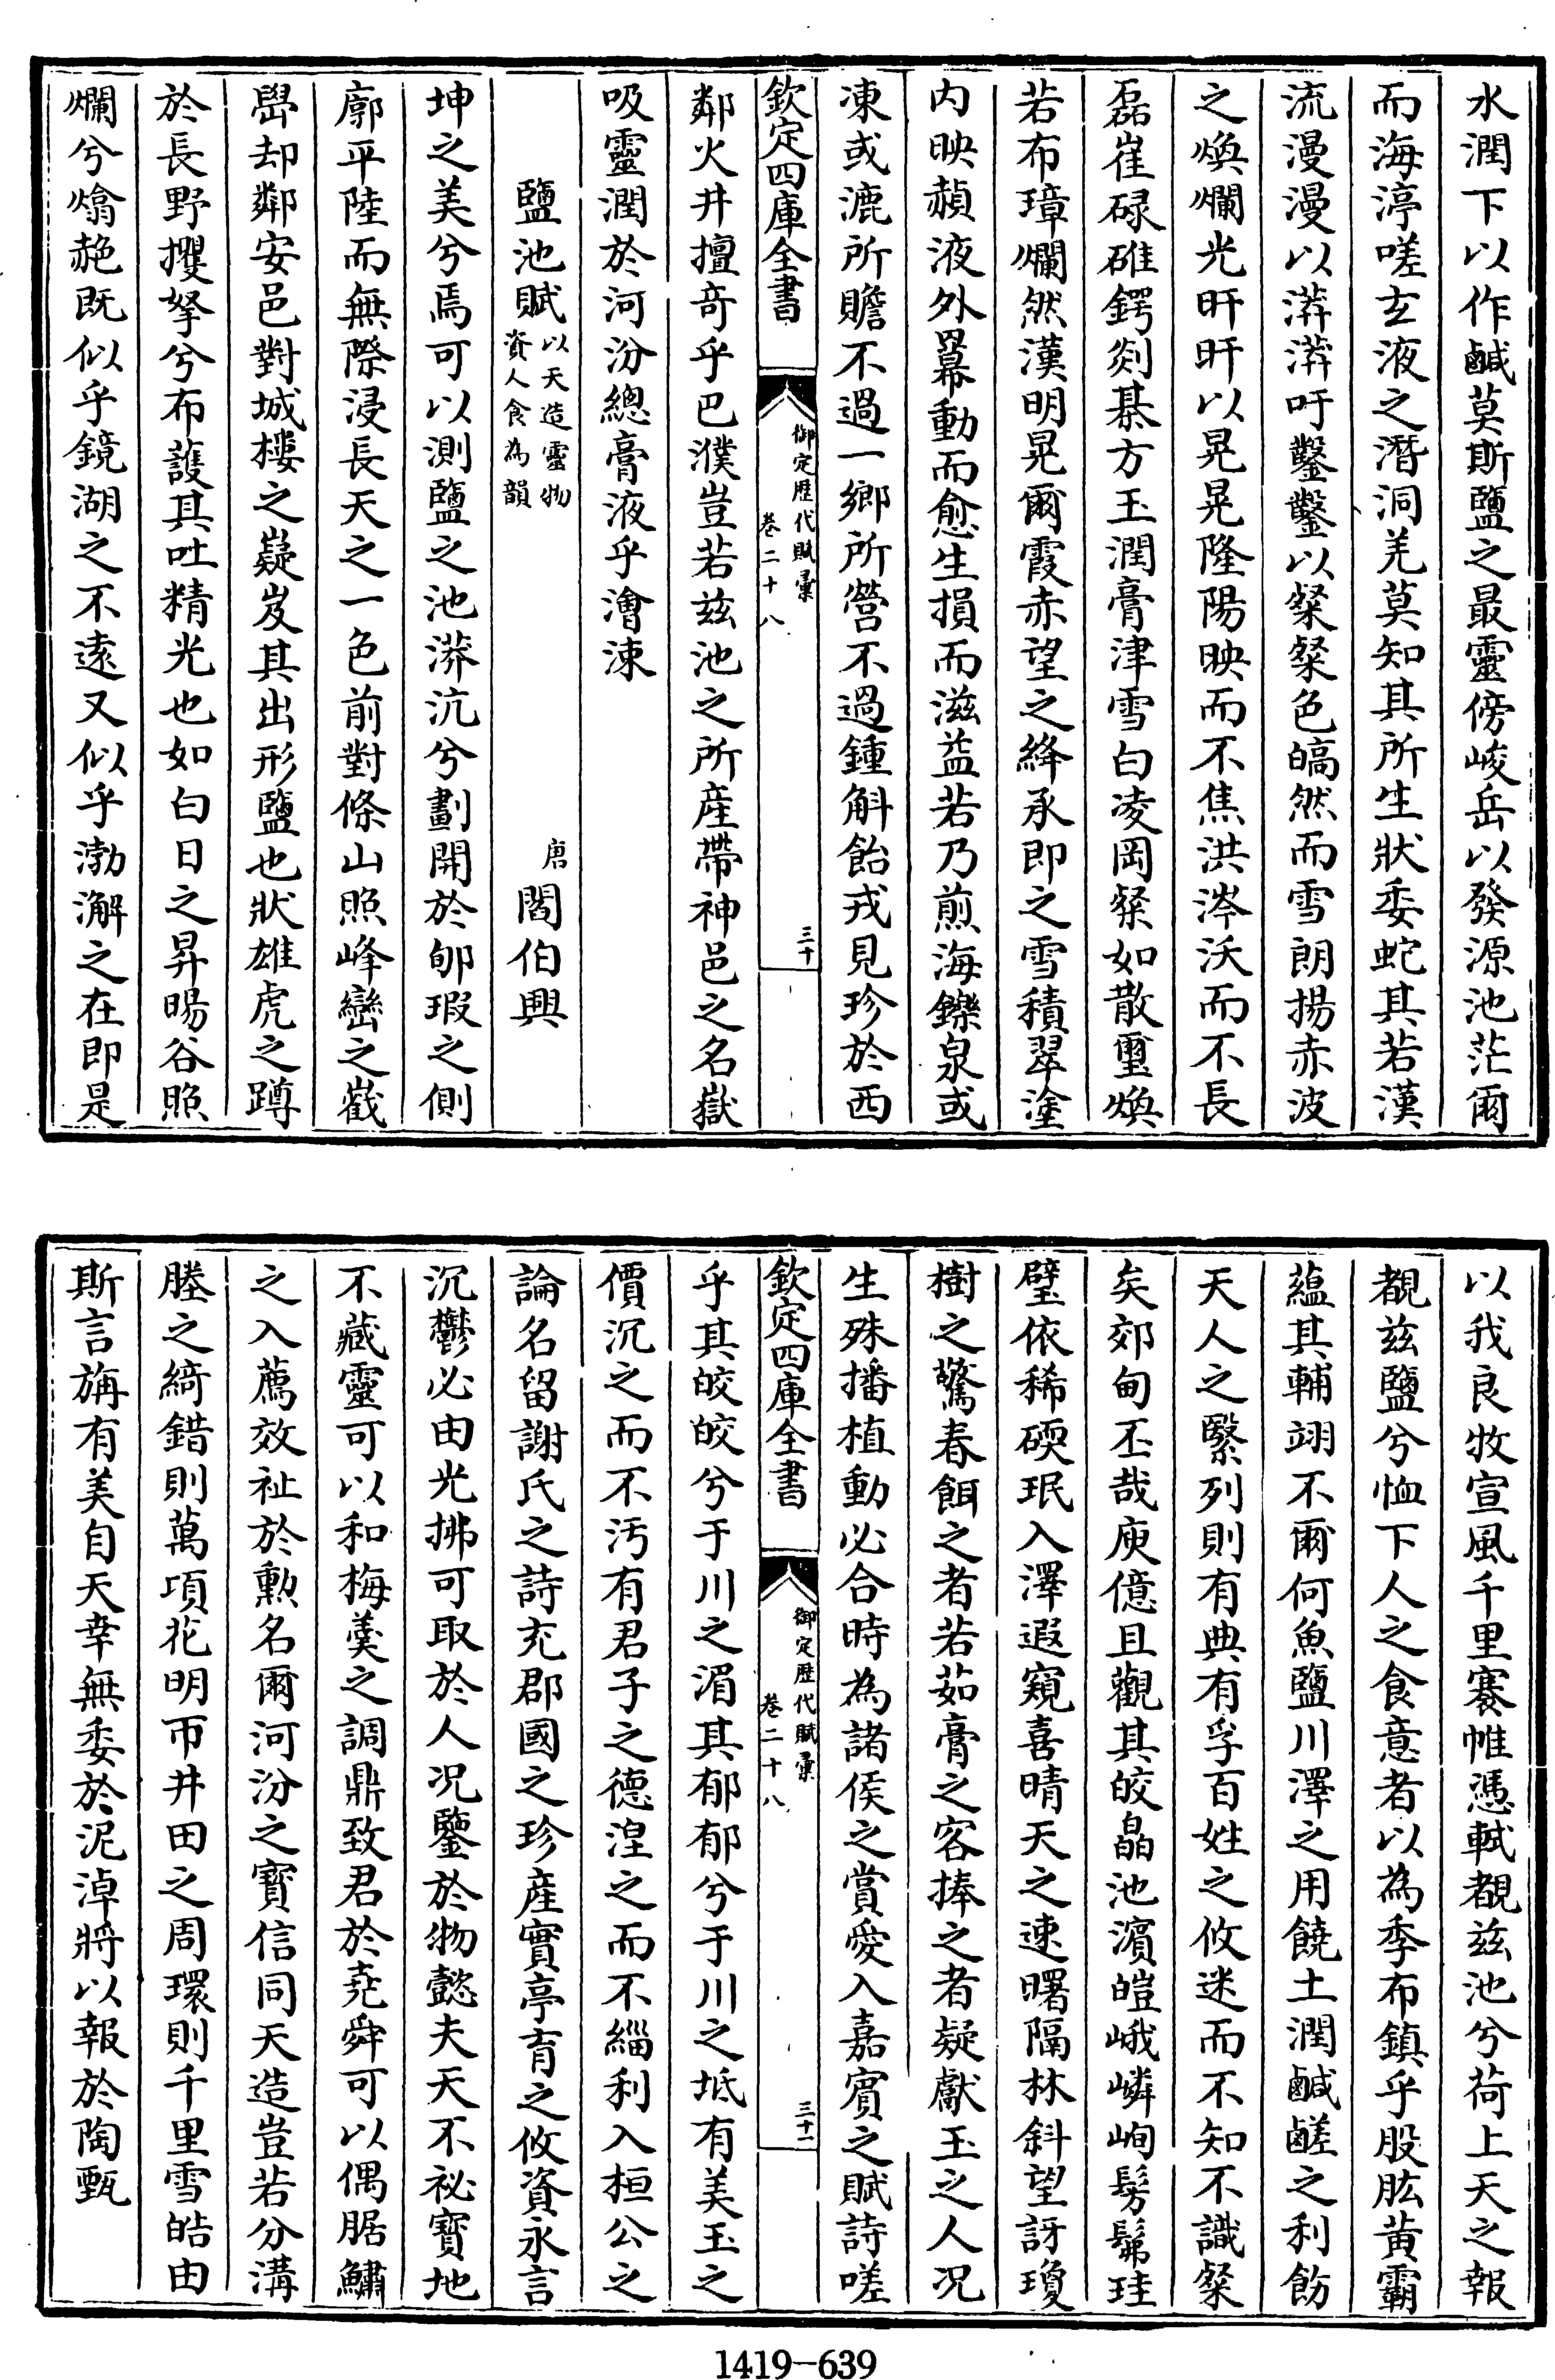 水潤下以作鹹莫斯鹽之最靈傍峻岳以發源池茫爾
而海渟嗟玄液之潛洞羌莫知其所生狀委蛇其若漢
流漫漫以漭漭吁鑿鑿以粲粲色皜然而雪朗揚赤波
之煥爛光旰旰以晃晃隆陽映而不焦洪涔沃而不長
磊崔碌碓鍔剡棊方玉潤膏津雪白凌岡粲如散璽煥
若布璋爛然漢明晃爾霞赤望之絳承即之雪積翠塗
内映赬液外羃動而愈生損而滋益若乃煎海鑠泉或
凍或漉所贍不過一鄉所營不過鍾斛飴戎見珍於西
欽定四庫全書
御定歴代賦彙
卷二十八
三十
鄰火井擅奇乎巴濮豈若兹池之所産帶神邑之名嶽
吸靈潤於河汾總膏液乎澮涑
鹽池賦
以天造靈物
資人食為韻
唐
閻伯興
坤之美兮焉可以測鹽之池漭沆兮劃開於郇瑕之側
廓平陸而無際浸長天之一色前對條山照峰巒之嶻
嵒却鄰安邑對城樓之嶷岌其出形鹽也狀雄虎之蹲
於長野攫拏兮布護其吐精光也如白日之昇暘谷照
爛兮熻赩既似乎鏡湖之不遠又似乎渤澥之在即是
以我良牧宣風千里褰帷憑軾覩兹池兮荷上天之報
覩兹鹽兮恤下人之食意者以為季布鎮乎股肱黄霸
蘊其輔翊不爾何魚鹽川澤之用饒土潤鹹鹺之利飭
天人之緊列則有典有孚百姓之攸迷而不知不識粲
矣郊甸丕哉庾億且觀其皎皛池濵皚峨嶙峋髣髴珪
璧依稀碝珉入澤遐窺喜晴天之速曙隔林斜望訝瓊
樹之驚春餌之者若茹膏之容捧之者疑獻玉之人况
生殊播植動必合時為諸侯之賞愛入嘉賓之賦詩嗟
欽定四庫全書
御定歴代賦彙
卷二十八
三十一
乎其皎皎兮于川之湄其郁郁兮于川之坻有美玉之
價沉之而不汚有君子之德湼之而不緇利入桓公之
論名留謝氏之詩充郡國之珍産實亭育之攸資永言
沉鬱必由光拂可取於人况鑒於物懿夫天不祕寳地
不藏靈可以和梅羮之調鼎致君於堯舜可以偶腒鱐
之入薦效祉於勲名爾河汾之寳信同天造豈若分溝
塍之綺錯則萬項花明帀井田之周環則千里雪皓由
斯言旃有美自天幸無委於泥淖將以報於陶甄
1419-639